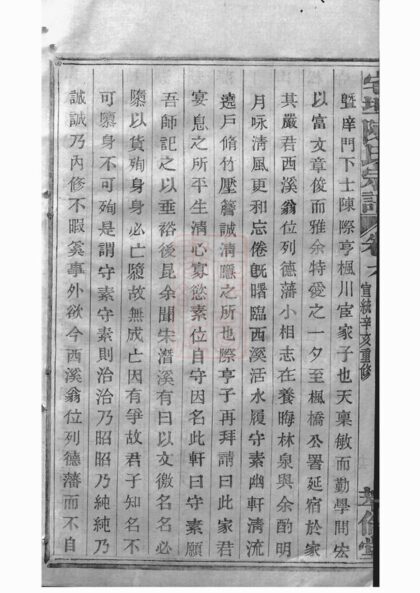 宅埠陳氏宗譜 卷 宣統辛亥重修
暨庠門下士陳際亨楓川宦家子也天稟敏而勤學問宏
以富文章俊而雅余特愛之一夕至楓橋公署延宿於家
其嚴君西溪翁位列德藩小相志在養晦林泉與余酌明
月咏清風更和忘倦旣曙臨西溪活水履守素幽軒清流
遶戶脩竹壓簷誠清隱之所也際亨子再拜請曰此家君
宴息之所平生清心寡慾素位自守因名此軒曰守素願
吾師記之以垂裕後昆余聞朱潛溪有曰以文徼名名必
隳以貨殉身身必亡隳故無成亡因有爭故君子知名不
可隳身不可殉是謂守素守素則治治乃昭昭乃純純乃
誠誠乃內修不暇奚事外欲今西溪翁位列德藩而不自